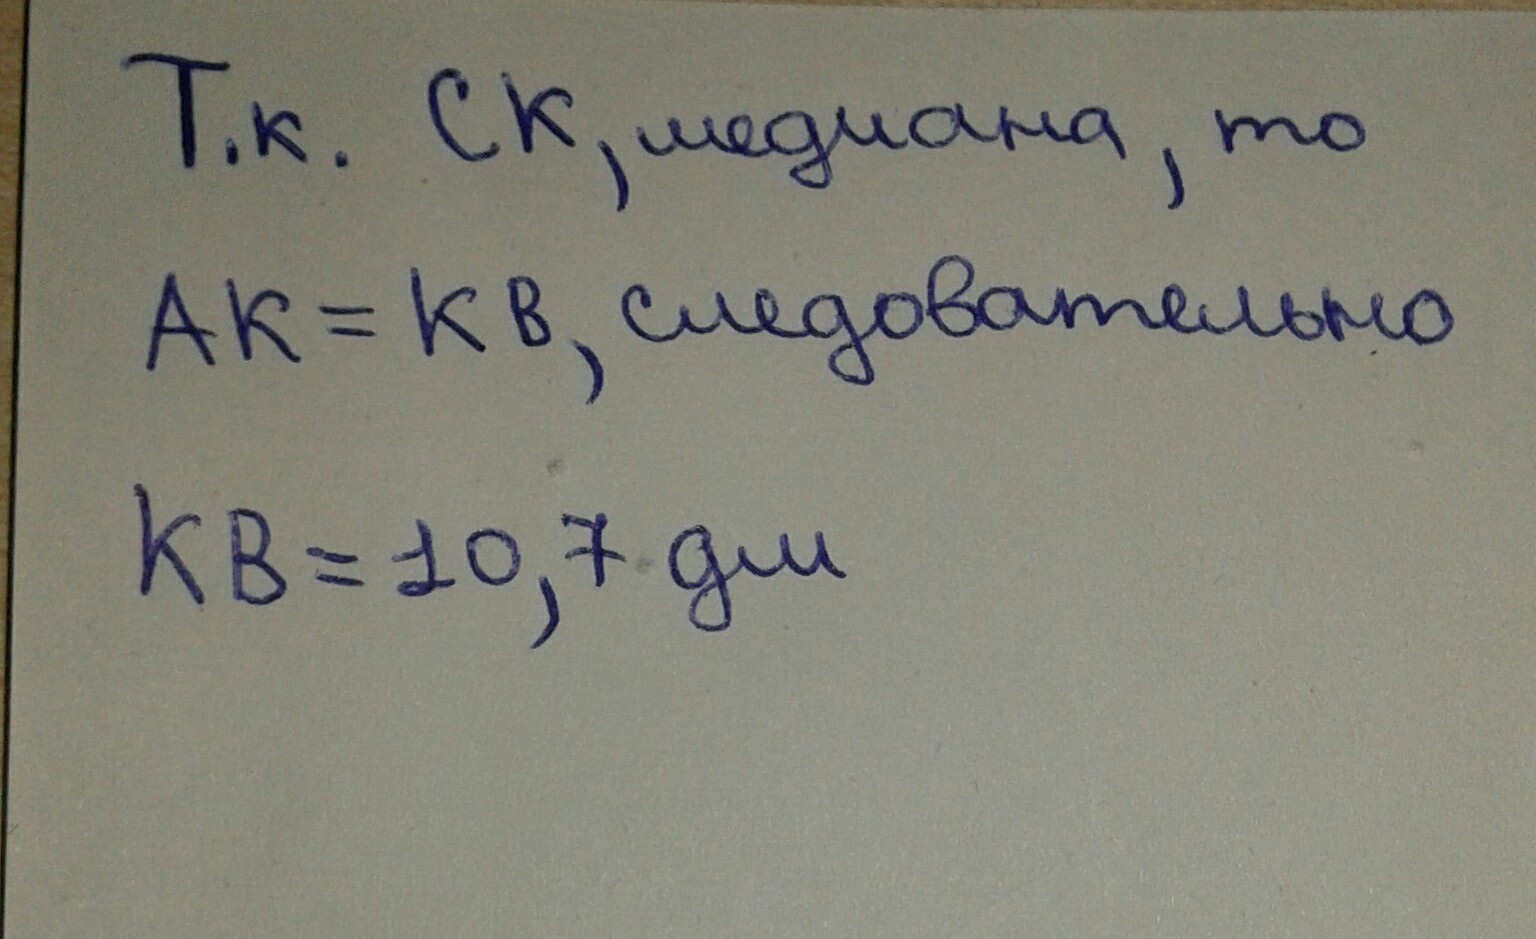 Т.к. СК, медиана, то
АК = КВ, следовательно
КВ = 10,7 дм